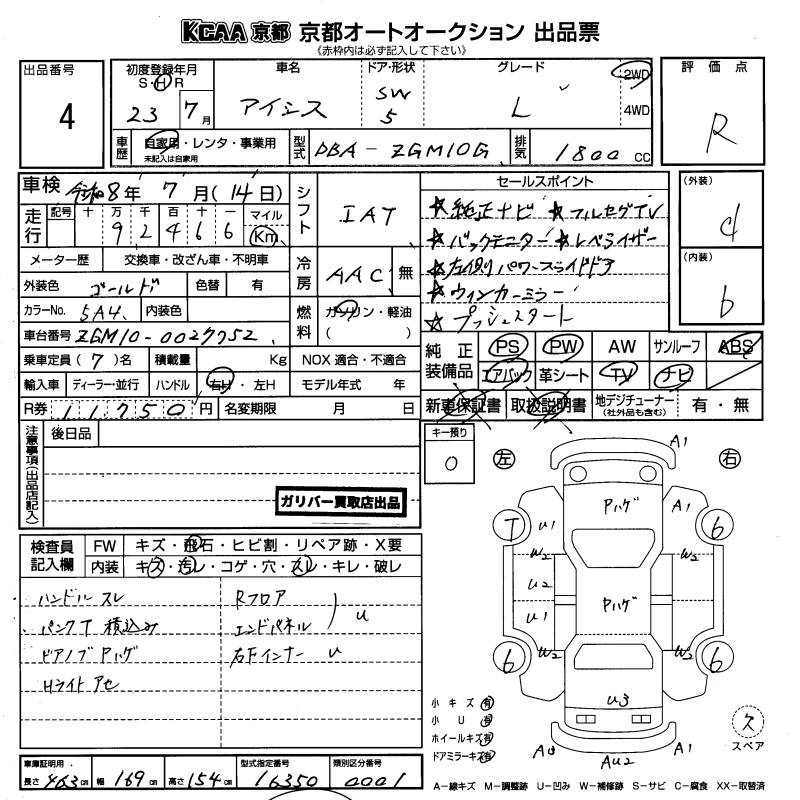 KCAA 京都 京都オートオークション 出品票
《赤枠内は必ず記入して下さい》
出品番号 4
初度登録年月 S・H・R 23 7月
車名 アイシス
ドア・形状 SW 5
グレード L
2WD 4WD
評価点 R
車歴 自家用・レンタ・事業用 未記入は自家用
型式 DBA-ZGM10G
排気 1800 CC
車検 令和8年 7月(14日)
シフト IAT
セールスポイント
☆純正ナビ ☆フルセグTV
☆バックモニター ☆レベライザー
☆左側パワースライドドア
☆ウィンカーミラー
☆プッシュスタート
(外装) d
(内装) b
走行 記号 十 万 千 百 十 一 マイル Km
9 2 4 6 6
メーター歴 交換車・改ざん車・不明車
冷房 AAC 無
外装色 ゴールド 色替 有
カラーNo. 5A4 内装色
燃料 ガソリン・軽油 ( )
車台番号 ZGM10-0027752
乗車定員 (7)名 積載量 Kg NOX適合・不適合
輸入車 ディーラー・並行 ハンドル 右H・左H モデル年式 年
R券 11750円 名変期限 月 日
純正装備品 PS PW AW サンルーフ ABS
エアバック 革シート TV ナビ
新車保証書 取扱説明書 地デジチューナー(社外品も含む) 有・無
注意事項(出品店記入) 後日品
ガリバー買取店出品
キー預り 0
左 右
検査員記入欄 FW キズ・飛石・ヒビ割・リペア跡・X要
内装 キズ・汚レ・コゲ・穴・スレ・キレ・破レ
ハンドル スレ
パンクT 積込み
ドアノブ Pハゲ
Hライト アセ
Rフロア
エンドパネル U
右Fインナー U
A1
Pハゲ
A1
T U1 6
W2 W2
U2
U1 Pハゲ
W2 W2
6 6
U3
A1
AU2
小キズ 有
小U 有
ホイールキズ 有
ドアミラーキズ 有
スペア
車庫証明用 長さ 463cm 幅 169cm 高さ 154cm
型式指定番号 16350
類別区分番号 0001
A-線キズ M-調整跡 U-凹み W-補修跡 S-サビ C-腐食 XX-取替済